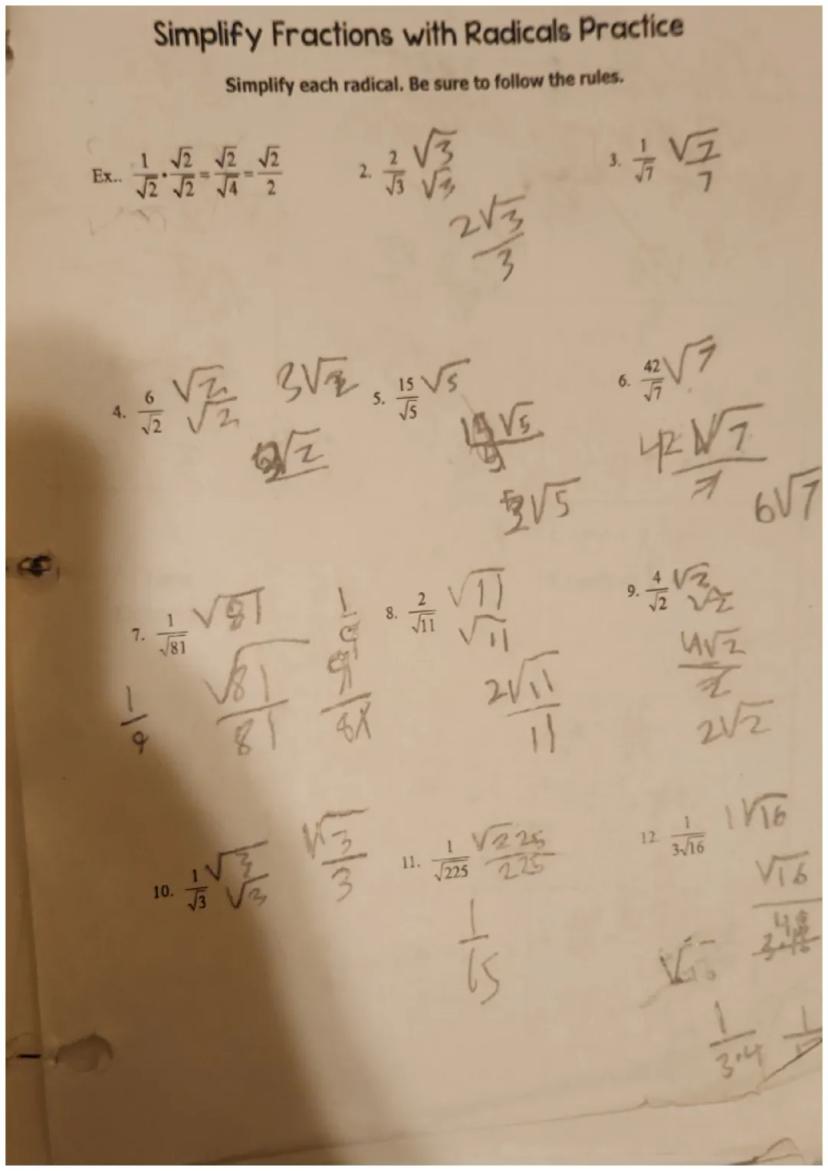 Simplify Fractions with Radicals Practice
Simplify each radical. Be sure to follow the rules.
Ex.. 1/√2 · √2/√2 = √2/√4 = √2/2
2. 2/√3 √3/√3
2√3/3
3. 1/√7 √7/7
4. 6/√2 √2/√2 3√2
√2
5. 15/√5 √5
15√5
√5
6. 42/√7 √7
42√7/7
6√7
7. 1/√81 √81
1/9
√81/81
9/81
8. 2/√11 √11/√11
2√11/11
9. 4/√2 √2/√2
4√2/2
2√2
10. 1/√3 √3/√3 √3/3
11. 1/√225 √225/225
1/15
12. 1/3√16 1√16
√16
1/3·4